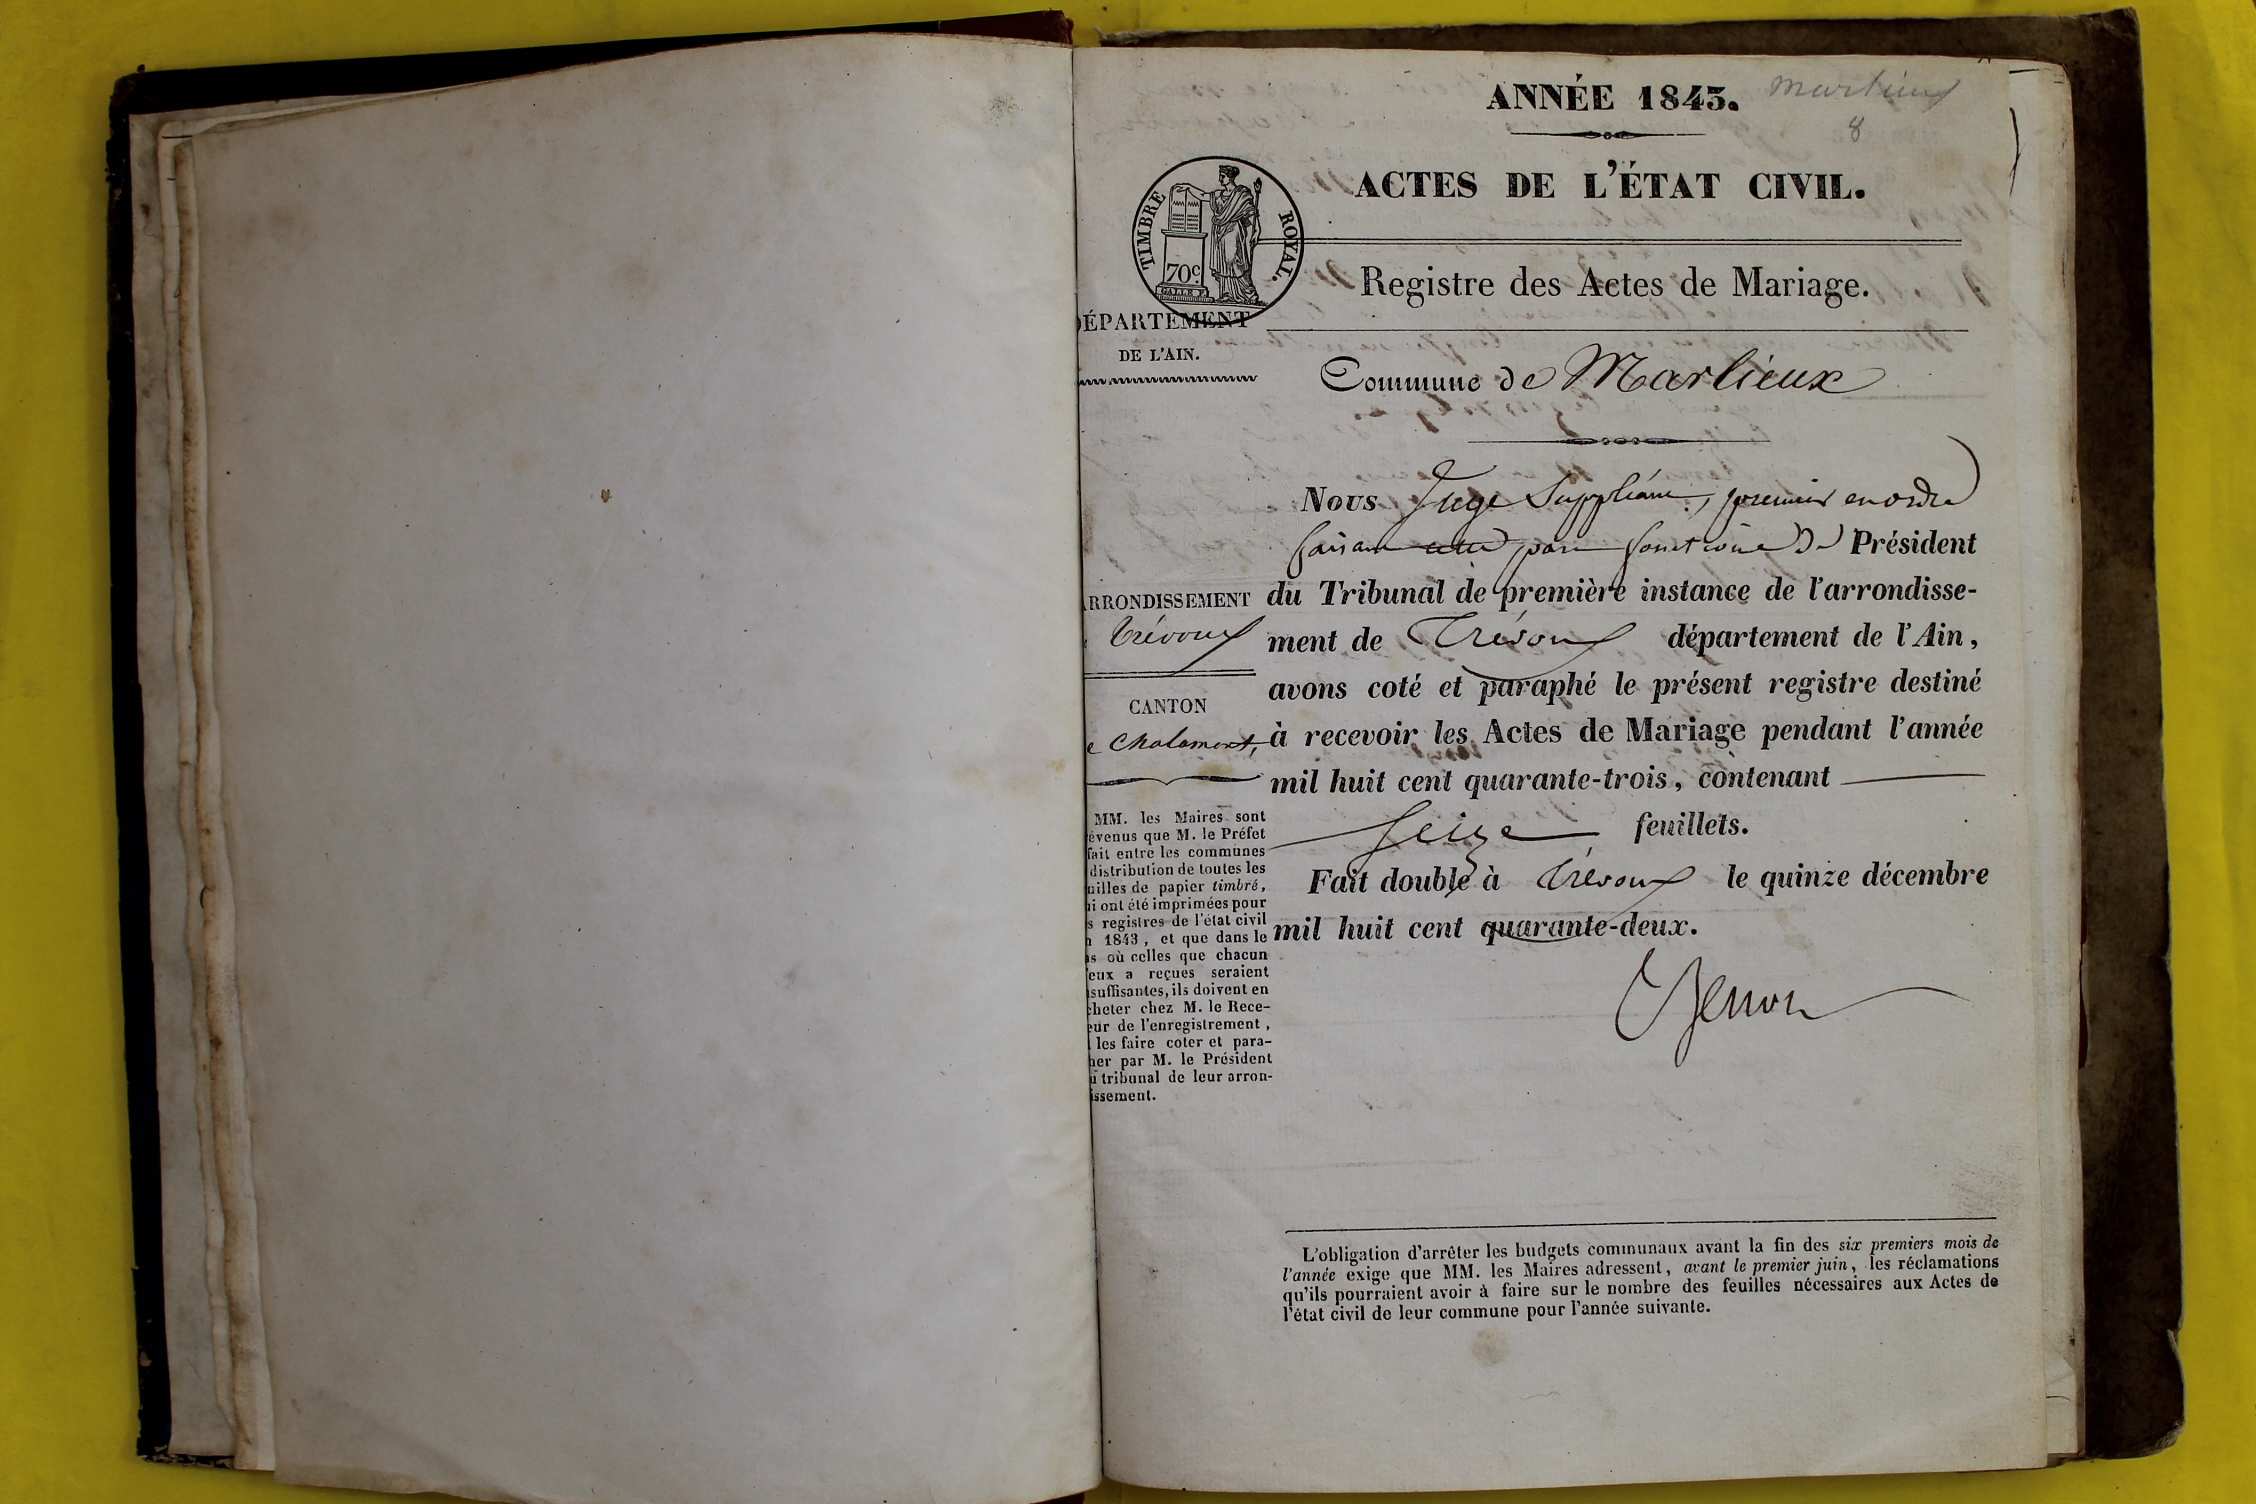 ANNÉE 1843.
Marlieux
8
ACTES DE L'ÉTAT CIVIL.
TIMBRE ROYAL.
70c
Registre des Actes de Mariage.
ÉPARTEMENT
DE L'AIN.
Commune de Marlieux
Nous Juge Suppléant, premier en ordre
faisant par fonctions de Président
ARRONDISSEMENT
Trévoux
du Tribunal de première instance de l'arrondisse-
ment de Trévoux département de l'Ain,
avons coté et paraphé le présent registre destiné
CANTON
e Chalamont,
à recevoir les Actes de Mariage pendant l'année
mil huit cent quarante-trois, contenant
Seize feuillets.
Fait double à Trévoux le quinze décembre
mil huit cent quarante-deux.
MM. les Maires sont
évenus que M. le Préfet
fait entre les communes
distribution de toutes les
uilles de papier timbré,
i ont été imprimées pour
s registres de l'état civil
n 1843, et que dans le
as où celles que chacun
'eux a reçues seraient
suffisantes, ils doivent en
cheter chez M. le Rece-
eur de l'enregistrement,
les faire coter et para-
her par M. le Président
u tribunal de leur arron-
issement.
L'obligation d'arrêter les budgets communaux avant la fin des six premiers mois de
l'année exige que MM. les Maires adressent, avant le premier juin, les réclamations
qu'ils pourraient avoir à faire sur le nombre des feuilles nécessaires aux Actes de
l'état civil de leur commune pour l'année suivante.